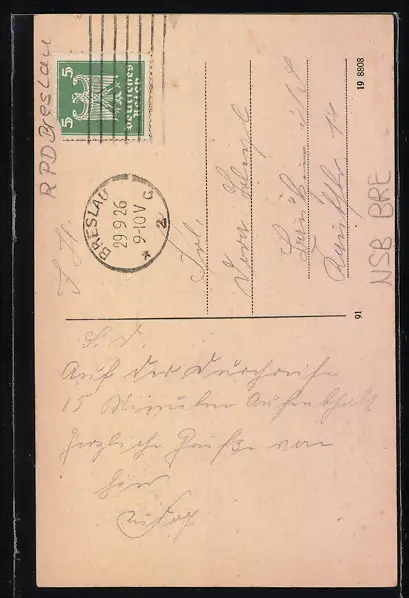 RPD Breslau
5 5
Deutsches
Reich
BRESLAU
29 9 26
9-10 V
C
* 2 *
Frl.
Dora
14
NSB BRE
19 8808
91
L. D.
Auf der Durchreise
15 Minuten Aufenthalt
herzliche Grüße von
hier